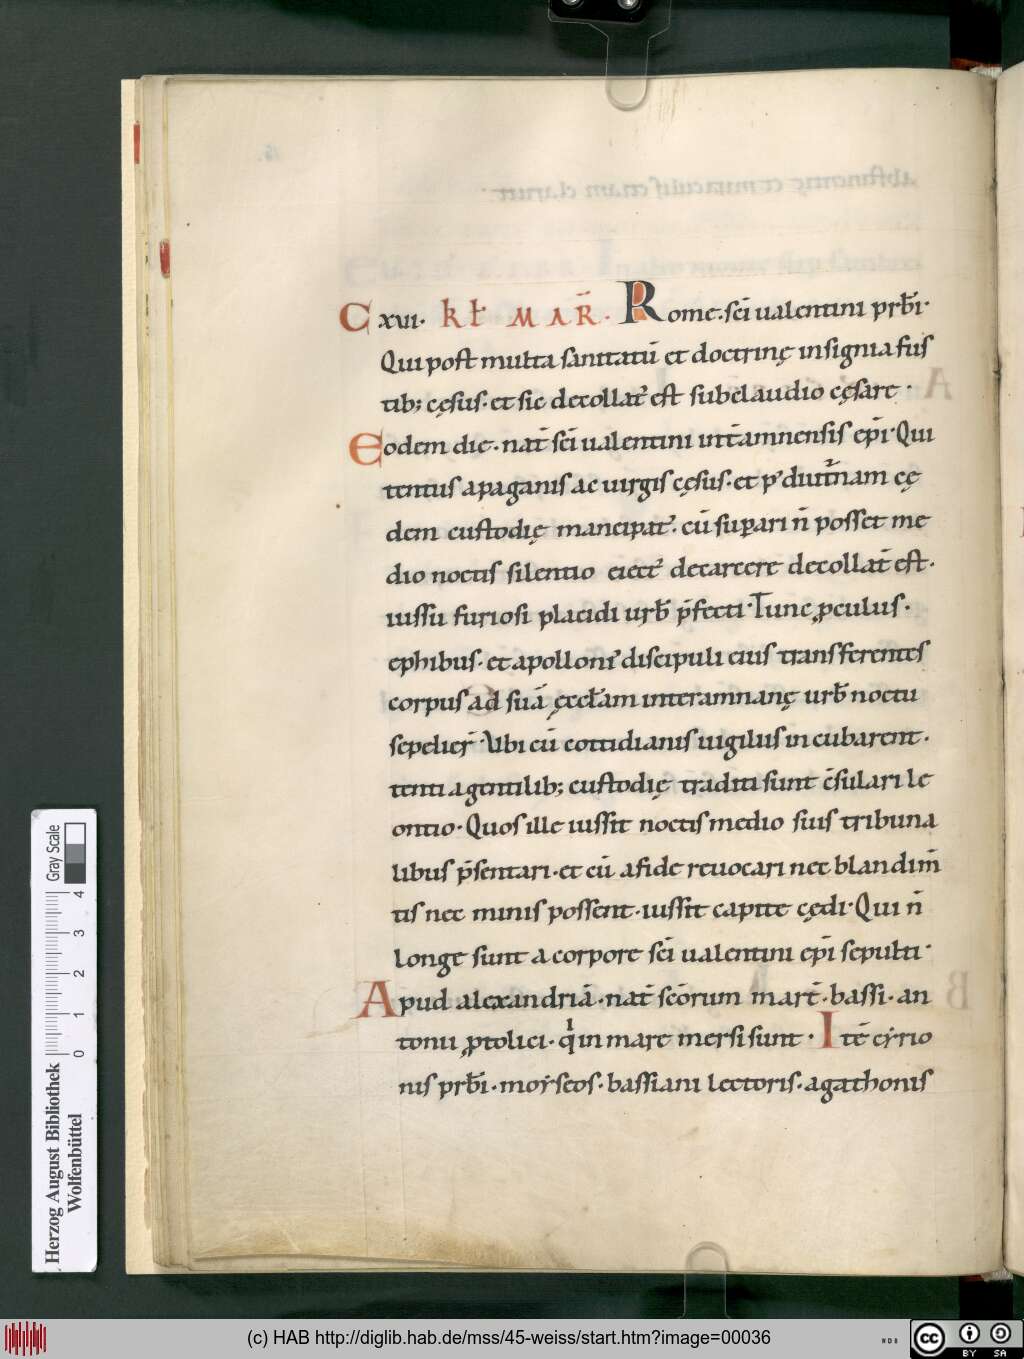 C xvi· kł MAR̄· Rome· sc̄i ualentini prb̄i·
Qui post multa sanitatū et doctrinę insignia fus
tib; cęsus· et sic decollat᷒ est sub claudio cęsare·
Eodem die· nat̄ sc̄i ualentini int̄amnensis epī· Qui
tentus apaganis ac uirgis cęsus· et p᷒ diut̄nam cę
dem custodię mancipat᷒· cū supari n̄ posset me
dio noctis silentio eiect᷒ decarcere decollat̄ est·
iussu furiosi placidi urb̄ p̄fecti· Tunc ꝓculus·
ephibus· et apolloni᷒ discipuli eius transferentes
corpus ad suā ęccłam interamnanę urb̄ noctu
sepelier̄· Ubi cū cottidianis uigiliis incubarent·
tenti agentilib; custodię traditi sunt c̄sulari le
ontio· Quos ille iussit noctis medio suis tribuna
libus p̄sentari· et cū afide reuocari nec blandim̄
tis nec minis possent· iussit capite cędi· Qui n̄
longe sunt a corpore sc̄i ualentini epī sepulti·
Apud alexandriā· nat̄ scōrum mart̄· bassi· an
tonii ꝓtolici· qͥ in mare mersi sunt· Itē cyrio
nis prb̄i· moyseos· bassiani lectoris· agathonis
Herzog August Bibliothek
Wolfenbüttel
0 1 2 3 4
Gray Scale
(c) HAB http://diglib.hab.de/mss/45-weiss/start.htm?image=00036
cc BY SA